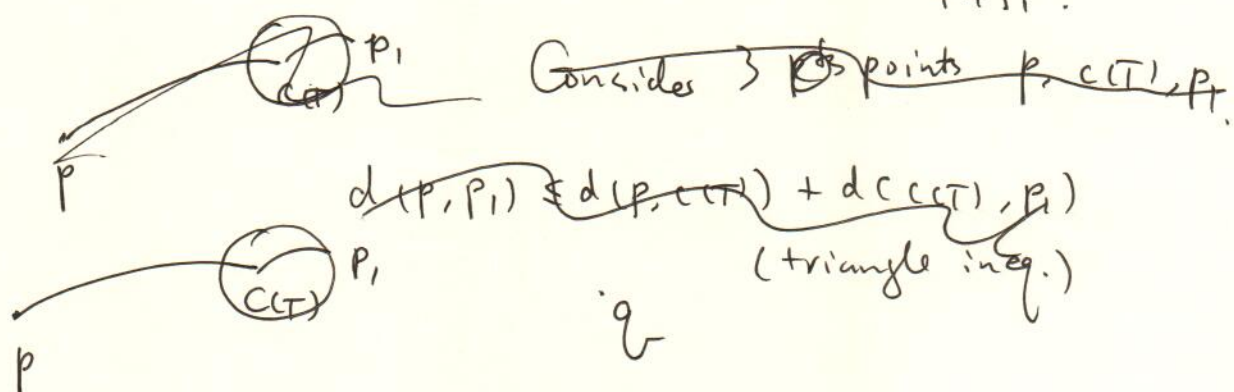 p₁
C(T)
Considers 3 pts points p, C(T), p₁.
p
d(p, p₁) ≤ d(p, C(T)) + d(C(T), p₁)
(triangle ineq.)
p₁
C(T)
q
p